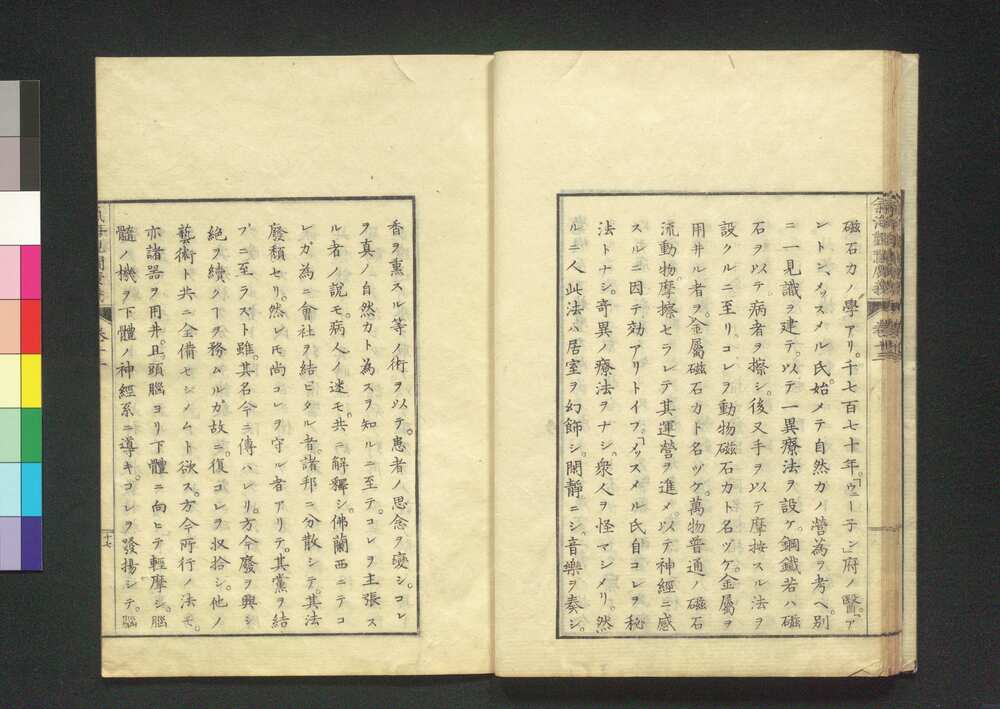 磁石カノ學アリ。千七百七十年。「ウ井ーネン」府ノ醫。「ア
ントン、メッスメル氏。始メテ自然カノ營為ヲ考ヘ。別
ニ一見識ヲ建テ。以テ一異療法ヲ設ケ。鋼鐵若ハ磁
石ヲ以テ病者ヲ擦シ。後又手ヲ以テ摩按スル法ヲ
設クルニ至リ。コレヲ動物磁石カト名ヅケ。金屬ヲ
用井ル者ヲ。金屬磁石カト名ヅケ。萬物普通ノ磁石
流動物摩擦セラレテ其運營ヲ進メ。以テ神經ニ感
スルニ因テ効アリトイフ。「メッスメル氏自コレヲ秘
法トナシ。奇異ノ療法ヲナシ。衆人ヲ怪マシメリ。然
ルニ人此法ハ居室ヲ幻飾シ。閑靜ニシ。音樂ヲ奏シ。
香ヲ熏スル等ノ術ヲ以テ。患者ノ思念ヲ變シ。コレ
ヲ真ノ自然カト為スヲ知ルニ至テ。コレヲ主張ス
ル者ノ說モ。病人ノ迷モ。共ニ解釋シ。佛蘭西ニテコ
レガ為ニ會社ヲ結ビタル者。諸邦ニ分散シテ。其法
廢頽セリ。然レ𪜈尚コレヲ守ル者アリテ。其黨ヲ結
ブニ至ラスト雖。其名今ニ傳ハレリ。方今廢ヲ興シ
絶ヲ續クヿヲ務ムルガ故ニ。復コレヲ収拾シ。他ノ
藝術ト共ニ全備セシメムト欲ス。方今所行ノ法モ。
亦諸器ヲ用井。且頭腦ヨリ下體ニ向ヒテ輕摩シ。腦
髓ノ機ヲ下體ノ神經系ニ導キ。コレヲ發揚シテ。腦
十七